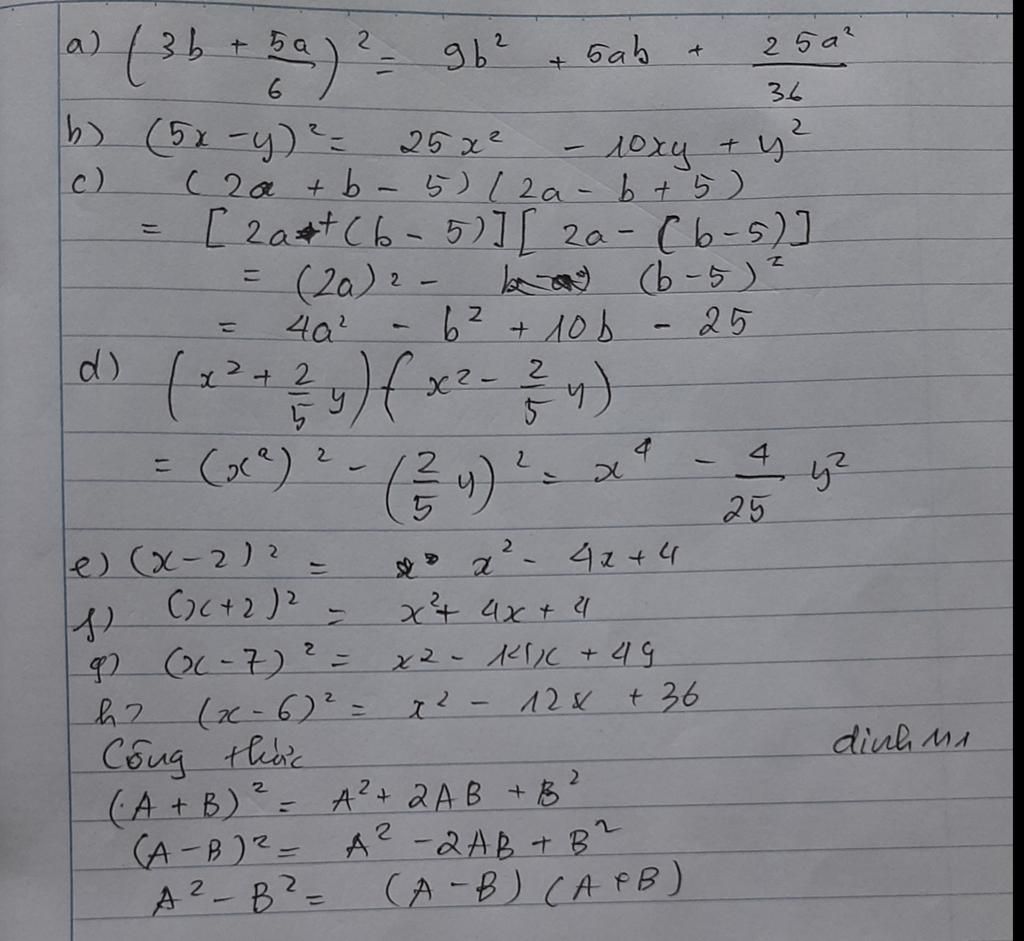 a) (3b + 5a/6)² = 9b² + 5ab + 25a²/36
b) (5x - y)² = 25x² - 10xy + y²
c) (2a + b - 5)(2a - b + 5)
= [2a + (b - 5)][2a - (b - 5)]
= (2a)² - (b - 5)²
= 4a² - b² + 10b - 25
d) (x² + 2/5 y)(x² - 2/5 y)
= (x²)² - (2/5 y)² = x⁴ - 4/25 y²
e) (x - 2)² = x² - 4x + 4
f) (x + 2)² = x² + 4x + 4
g) (x - 7)² = x² - 14x + 49
h) (x - 6)² = x² - 12x + 36
Công thức
(A + B)² = A² + 2AB + B²
(A - B)² = A² - 2AB + B²
A² - B² = (A - B)(A + B)